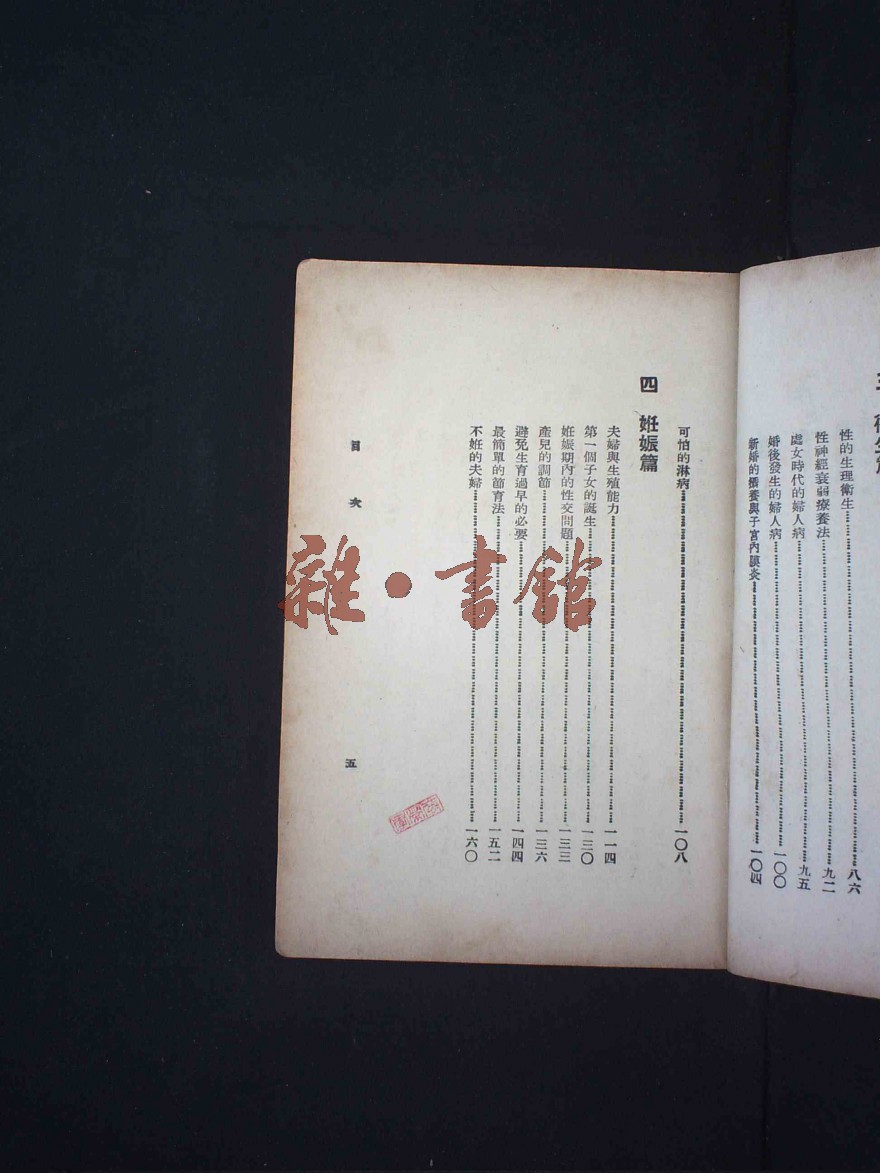 性的生理衛生 八六
性神經衰弱療養法 九二
處女時代的婦人病 九五
婚後發生的婦人病 一〇〇
新婚的攝養與子宮內膜炎 一〇四
可怕的淋病 一〇八
四 姙娠篇
夫婦與生殖能力 一一四
第一個子女的誕生 一三〇
姙娠期內的性交問題 一三三
產兒的調節 一三六
避免生育過早的必要 一四四
最簡單的節育法 一五二
不姙的夫婦 一六〇
目次
五
雜·書館